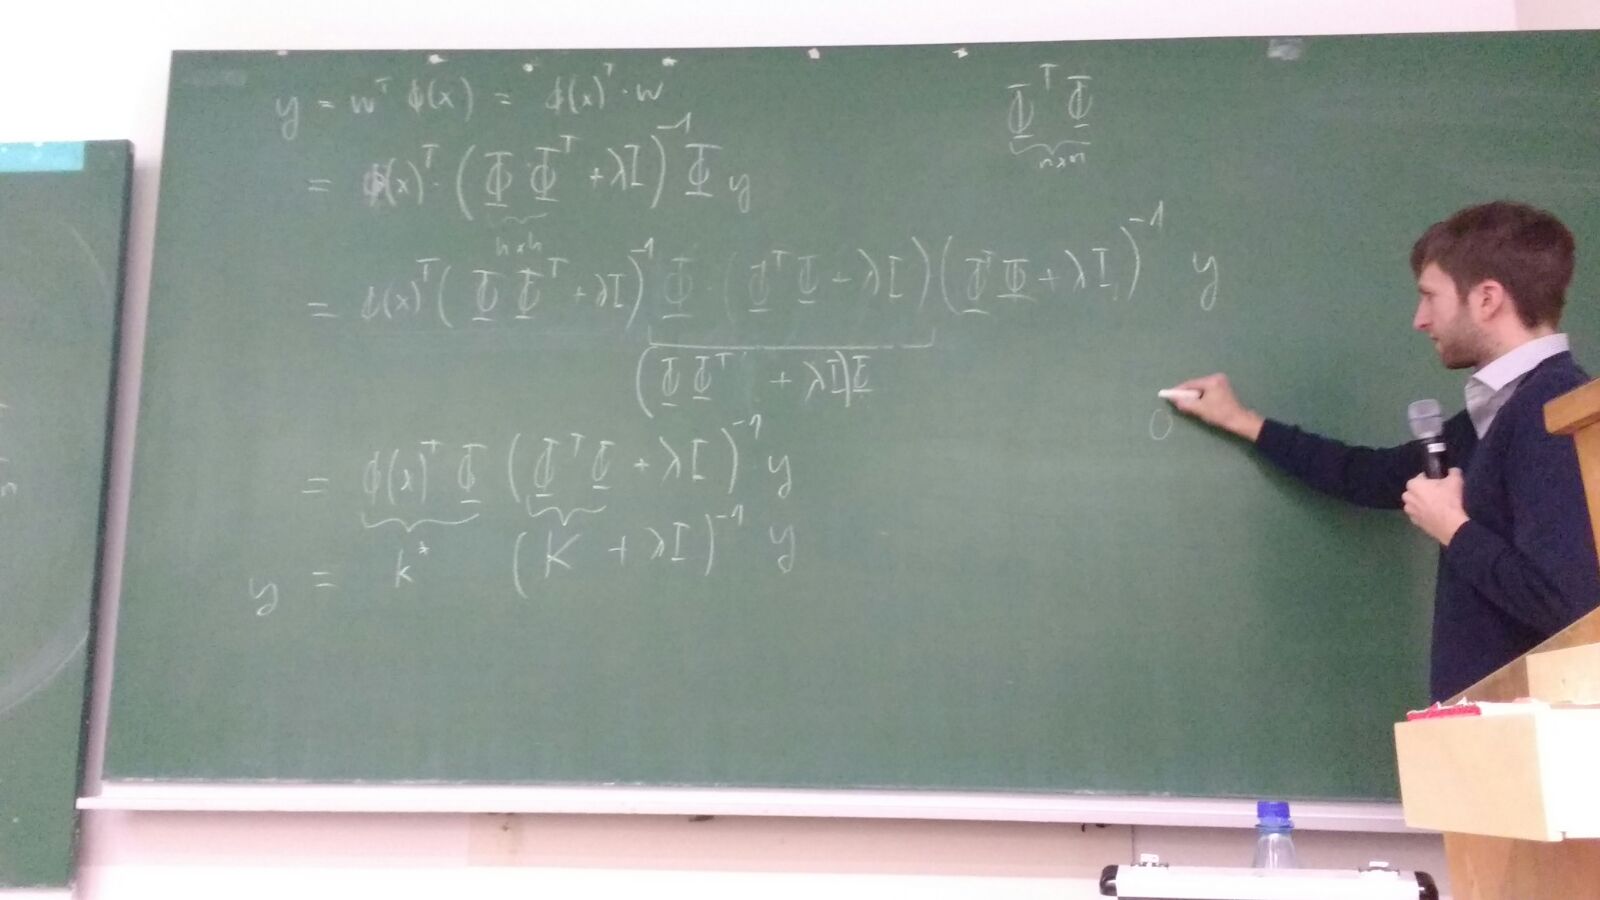 y = wᵀ ϕ(x) = ϕ(x)ᵀ · w
Φᵀ Φ
n×n
= ϕ(x)ᵀ · (Φ · Φᵀ + λI)⁻¹ Φ y
h×h
= ϕ(x)ᵀ (Φ Φᵀ + λI)⁻¹ Φ · (Φᵀ Φ + λI) (Φᵀ Φ + λI)⁻¹ y
(Φ Φᵀ + λI) Φ
= ϕ(x)ᵀ Φ (Φᵀ Φ + λI)⁻¹ y
y = k* (K + λI)⁻¹ y